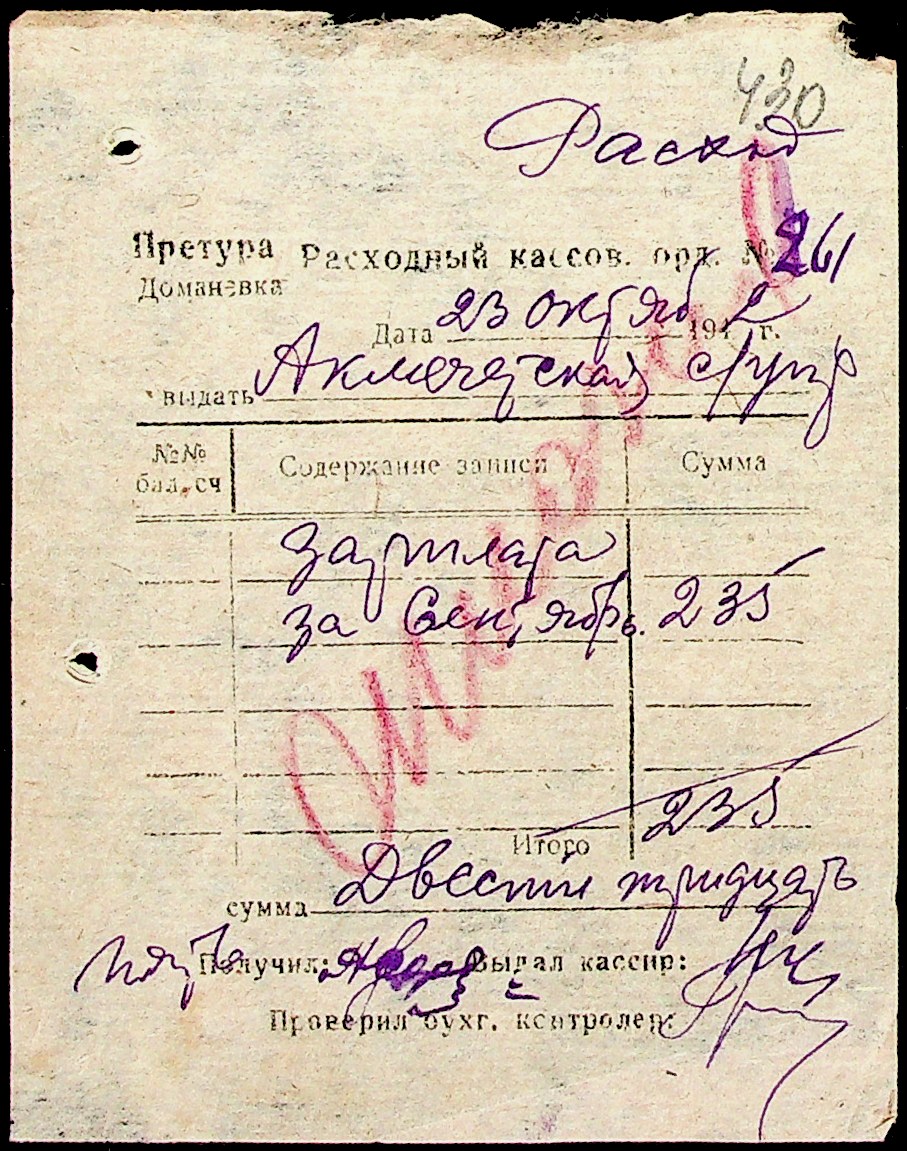 430
Расход
Претура Расходный кассов. орд. № 261
Доманевка
Дата 23 октяб 1942 г.
выдать Акмечетской
№№ бал. сч Содержание записи Сумма
зарплата
за Сентябрь. 235
Итого 235
сумма Двести тридцать
пять Получил: Выдал кассир:
Проверил бухг. контролер: